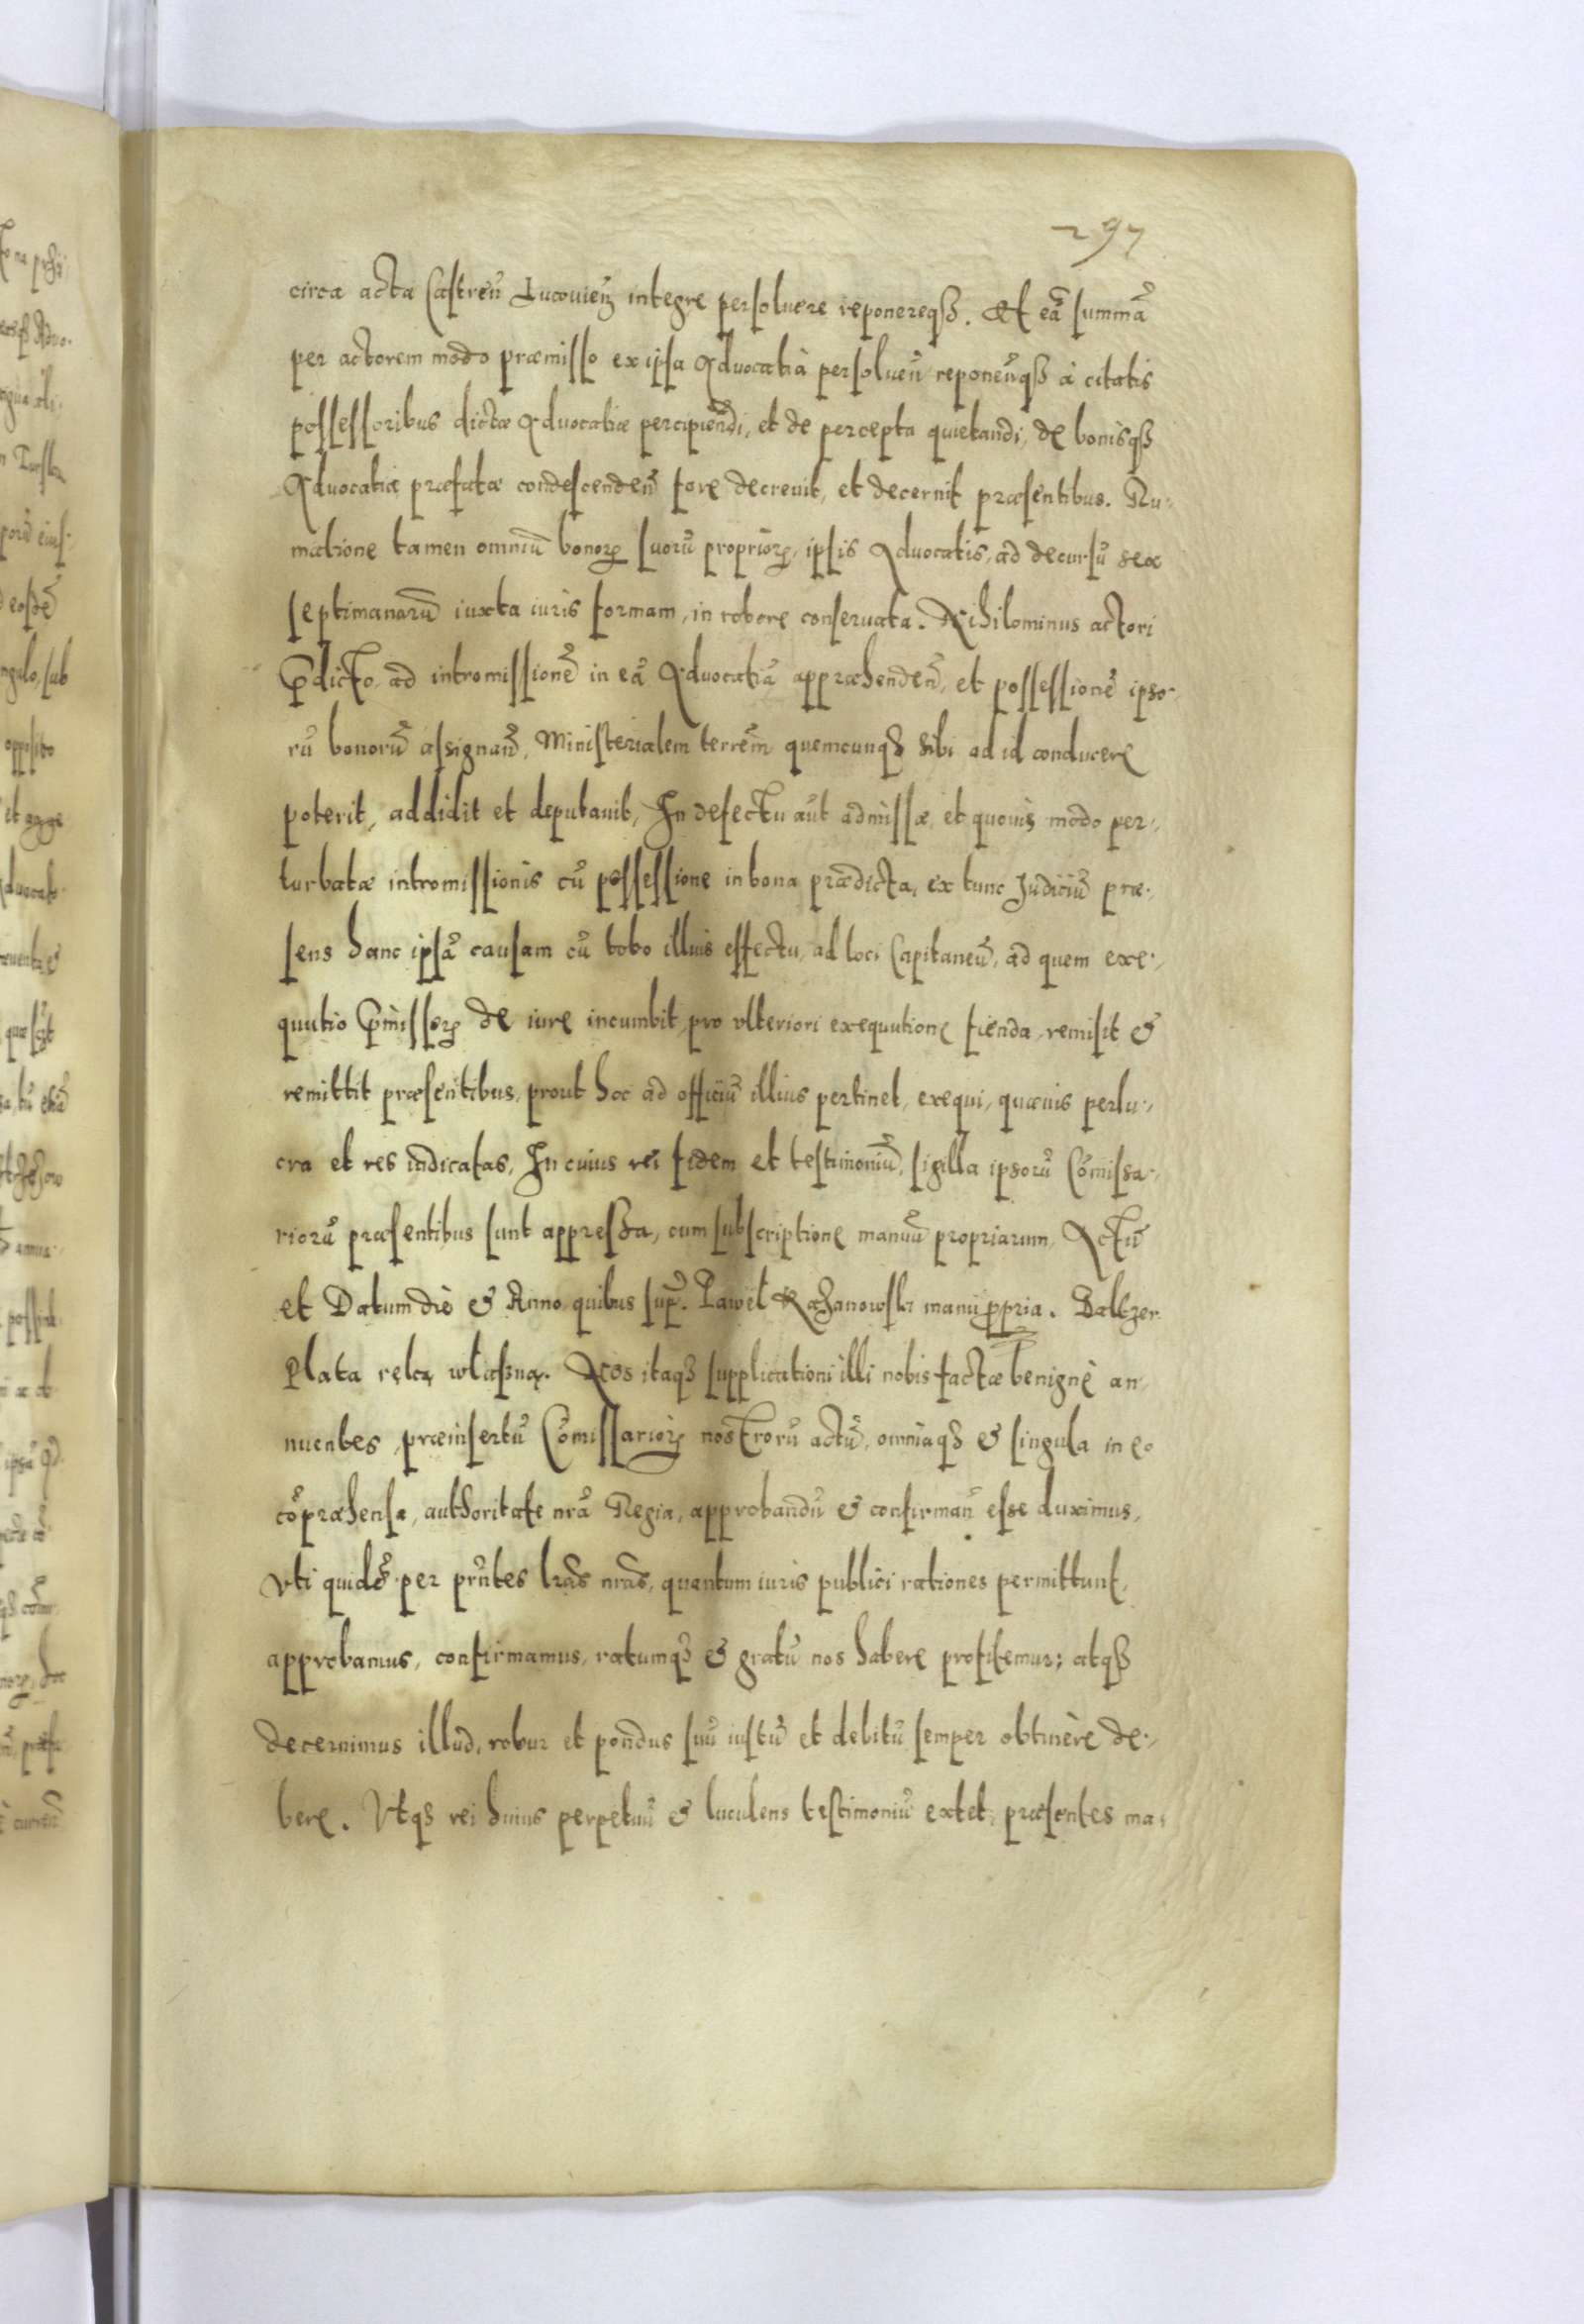 297
circa acta Castreñ Lucovieñ integre persoluere reponereqȝ. Et eã summã
per actorem modo præmisso ex ipsa Aduocatia persolueñ reponeñqȝ à citatis
possessoribus dictæ Aduocatiæ percipiendi, et de percepta quietandi, de bonisqȝ
Aduocatiæ præfatæ condescendeñ fore decreuit, et decernit præsentibus. Ru-
matione tamen omniũ bonorꝝ suorũ propriorꝝ, ipsis Aduocatis, ad decursũ sex
septimanarũ iuxta iuris formam, in robore conseruata. Nihilominus actori
ꝑdicto ad intromissionẽ in eã Aduocatiã appræhendeñ, et possessionẽ ipso-
rũ bonorũ assignañ, Ministerialem terrẽm quemcunqȝ sibi ad id conducere
poterit, addidit et deputauit, In defectu aũt admissæ et quouis modo per-
turbatæ intromissionis cũ possessione in bona prædicta, ex tunc Iudiciũ præ-
sens hanc ipsã causam cũ toto illius effectu, ad loci Capitaneũ, ad quem exe-
quutio ꝑmissorꝝ de iure incumbit, pro vlteriori exequutione fienda, remisit &
remittit præsentibus, prout hoc ad officiũ illius pertinet, exequi, quæuis perlu-
cra et res iudicatas, In cuius rei fidem et testimoniũ, sigilla ipsorũ Cõmissa-
riorũ præsentibus sunt appressa, cum subscriptione manuũ propriarum, Actũ
et Datum die & Anno quibus sup̃. Paweł Kazanowski manu ꝓpria. Baltzer
Plata ręką własną. Nos itaqȝ supplicationi illi nobis factæ benignè an-
nuentes, præinsertũ Cõmissariorꝝ nostrorũ actũ, omniaqȝ & singula in eo
cõpræhensa, authoritate nrã Regia, approbandũ & confirmañ esse duximus,
vti quidẽ per prñtes lrãs nrãs, quantum iuris publici rationes permittunt,
approbamus, confirmamus, ratumqȝ & gratũ nos habere profitemur; atqȝ
decernimus illud, robur et pondus suũ iustũ et debitũ semper obtinère de-
bere. Vtqȝ rei huius perpetuũ & luculens testimoniũ extet, præsentes ma-